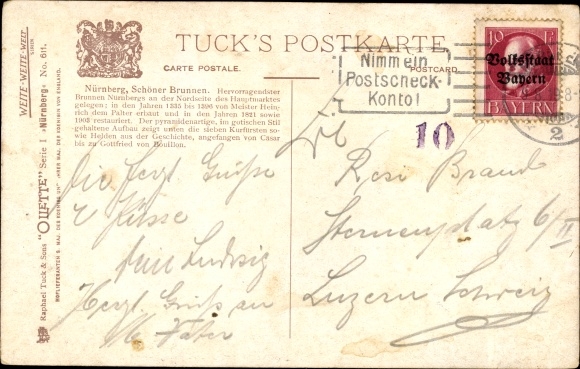 TUCK'S POSTKARTE
CARTE POSTALE.
POSTCARD.
WEITE-WEITE-WELT
SERIEN
Raphael Tuck & Sons "OILETTE" Serie I »Nürnberg« No. 611.
HOFLIEFERANTEN S. MAJ. DES KOENIGS UND IHRER MAJ. DER KOENIGIN VON ENGLAND.
Nürnberg, Schöner Brunnen. Hervorragendster
Brunnen Nürnbergs an der Nordseite des Hauptmarktes
gelegen; in den Jahren 1385 bis 1396 von Meister Hein-
rich dem Palier erbaut und in den Jahren 1821 sowie
1903 restauriert. Der pyramidenartige, im gotischen Stil
gehaltene Aufbau zeigt unten die sieben Kurfürsten so-
wie Helden aus der Geschichte, angefangen von Cäsar
bis zu Gottfried von Bouillon.
Nimm ein
Postscheck-
Konto!
10 Pf
Volksstaat
Bayern
BAYERN
2
10
Die herzl. Grüße
u Küsse
Ludwig
Herzl. Gruß an
Vater
Rosi Brand
Sternenplatz 6/II
Luzern Schweiz